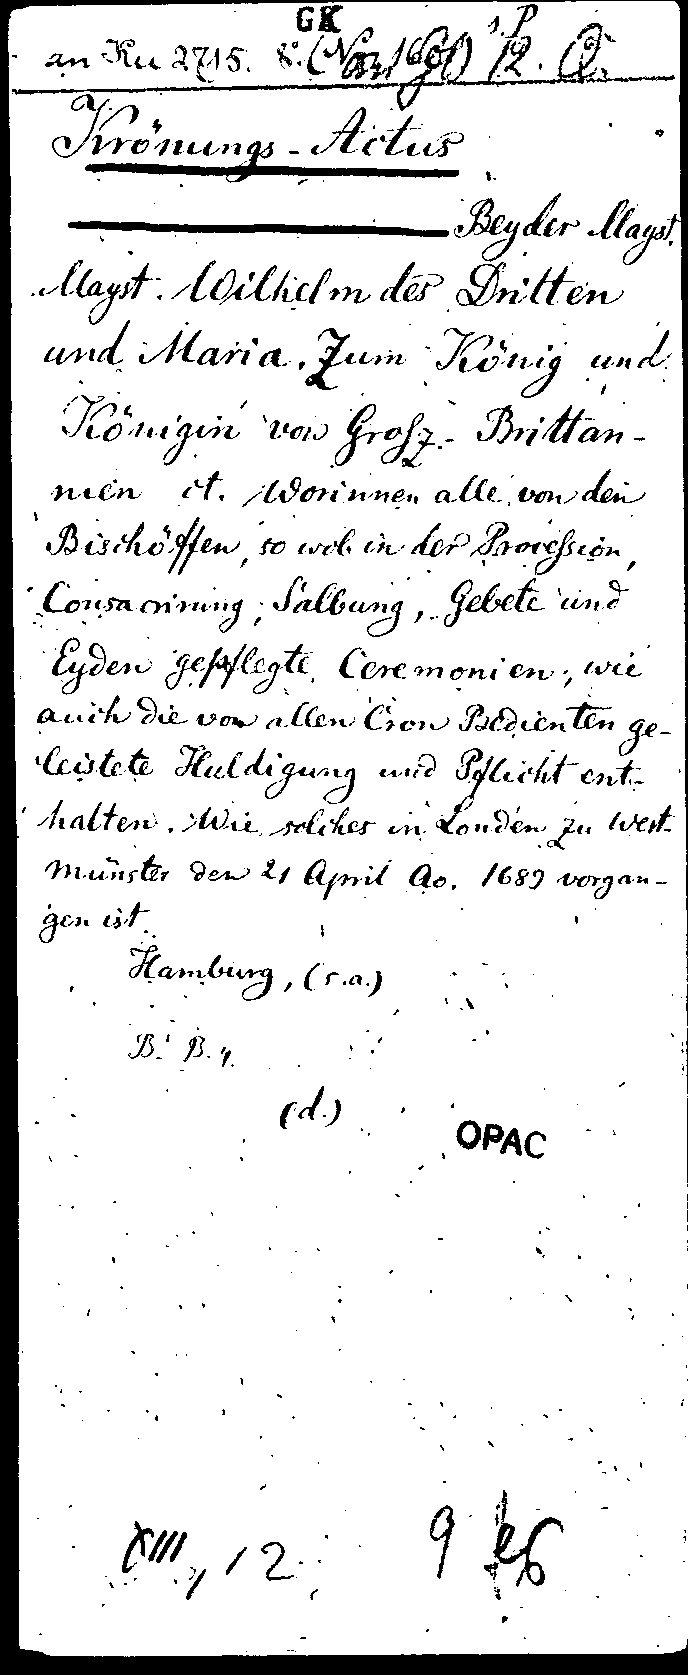 GK
an Ku 2715. 8.
Krönungs-Actus
Beyder Mayst.
Mayst. Wilhelm des Dritten
und Maria. Zum König und
Königin von Grosz-Brittan-
nien ct. Worinnen alle von den
Bischöffen, so wol in der Procession,
Consacrirung, Salbung, Gebete und
Eyden gepflegte Ceremonien, wie
auch die von allen Cron Bedienten ge-
leistete Huldigung und Pflicht ent-
halten. Wie solches in Londen zu West-
münster den 21 April Ao. 1689 vorgan-
gen ist.
Hamburg, (s.a.)
B. B. 4.
(d.)
OPAC
XIII, 12 9